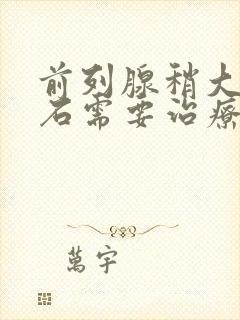 前列腺稍大
石需要治療
萬宇